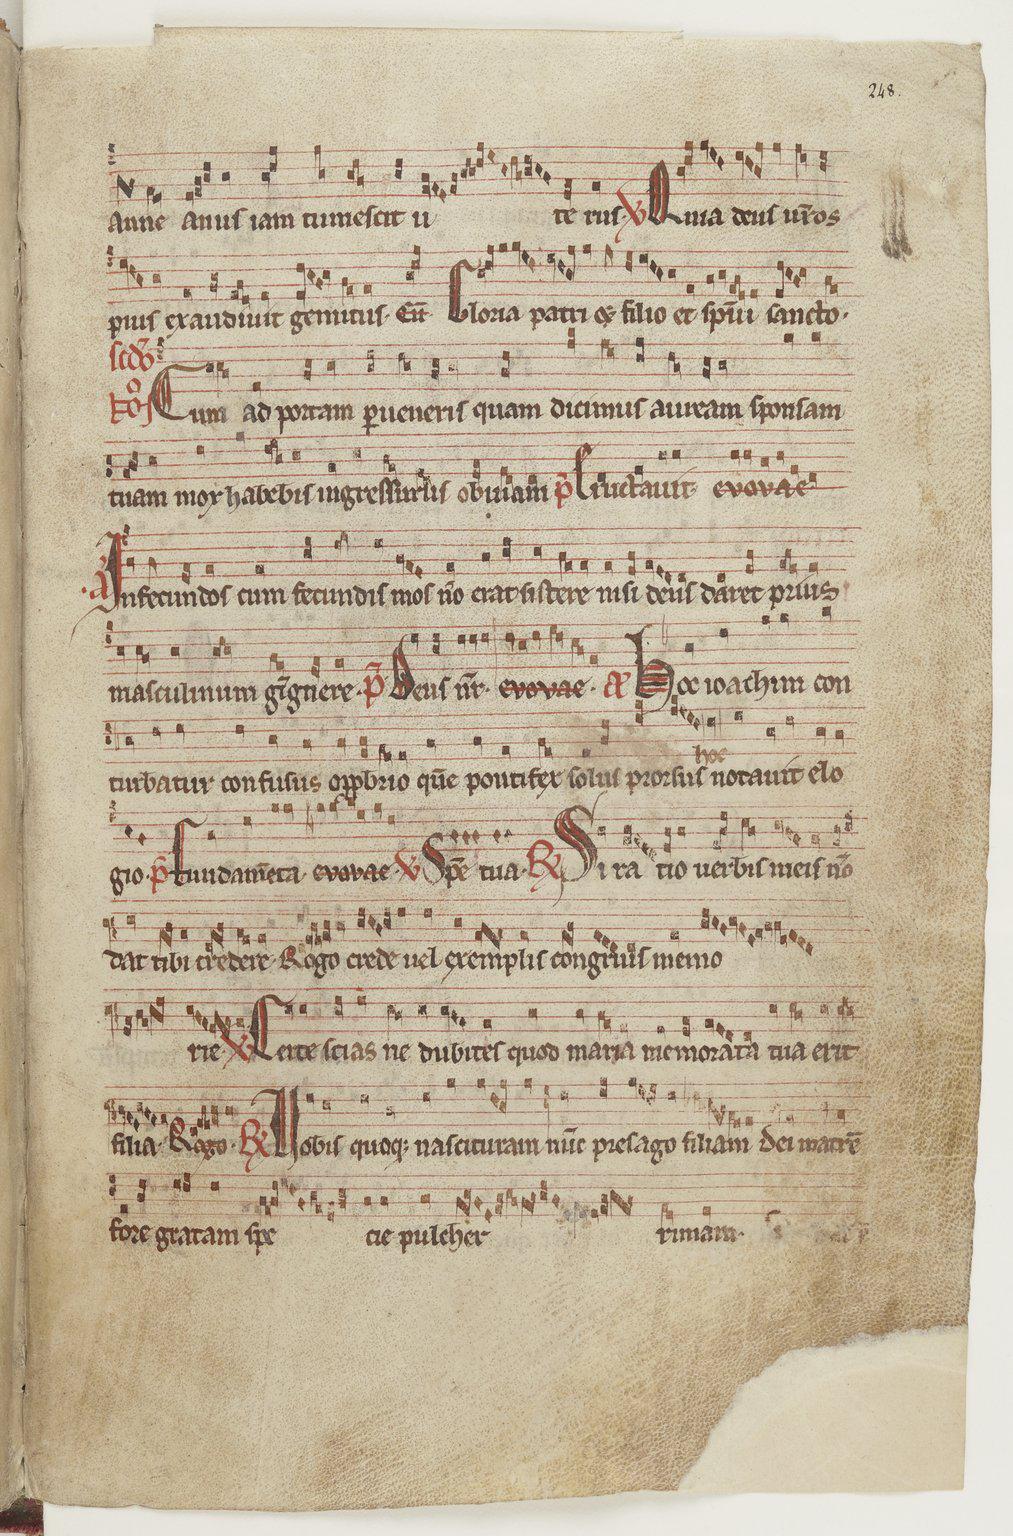 248.
Anne anus iam tumescit u te rus. V Quia deus ur̄os
pius exaudiuit gemitus. Gloria patri & filio et sp̄iu sancto.
Cum ad portam pueneris quam dicimus auream sponsam
tuam mox habebis ingressuris obuiam p̄ Eructauit evovae
Infecundos cum fecundis mos n̄o erat sistere nisi deus daret prius
masculinum gignere. p̄ Deus nr̄. evovae. A Hoc ioachim con
hoc
turbatur confusus opprobrio que pontifex solus prorsus notauit elo
gio. p̄ Fundam̄ta evovae V Spe tua. R Si ra tio uerbis meis n̄o
dat tibi credere. Rogo crede uel exemplis congruis memo
rie V Certe scias ne dubites quod maria memorata tua erit
filia. Rogo. R Nobis quoq; nascituram nūc presago filiam dei matrē
fore gratam spe cie pulcher rimam.